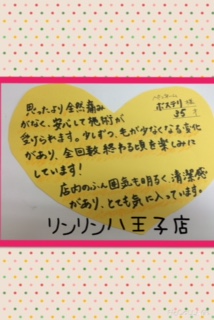 ポスティリは
35
思ったより全然痛み
がなく、安心して施術が
受けられます。少しずつ、毛が少なくなる変化
があり、全回数終わる頃を楽しみに
しています！
店内のふん囲気も明るく、清潔感
があり、とても気に入っています。
リンリン八王子店